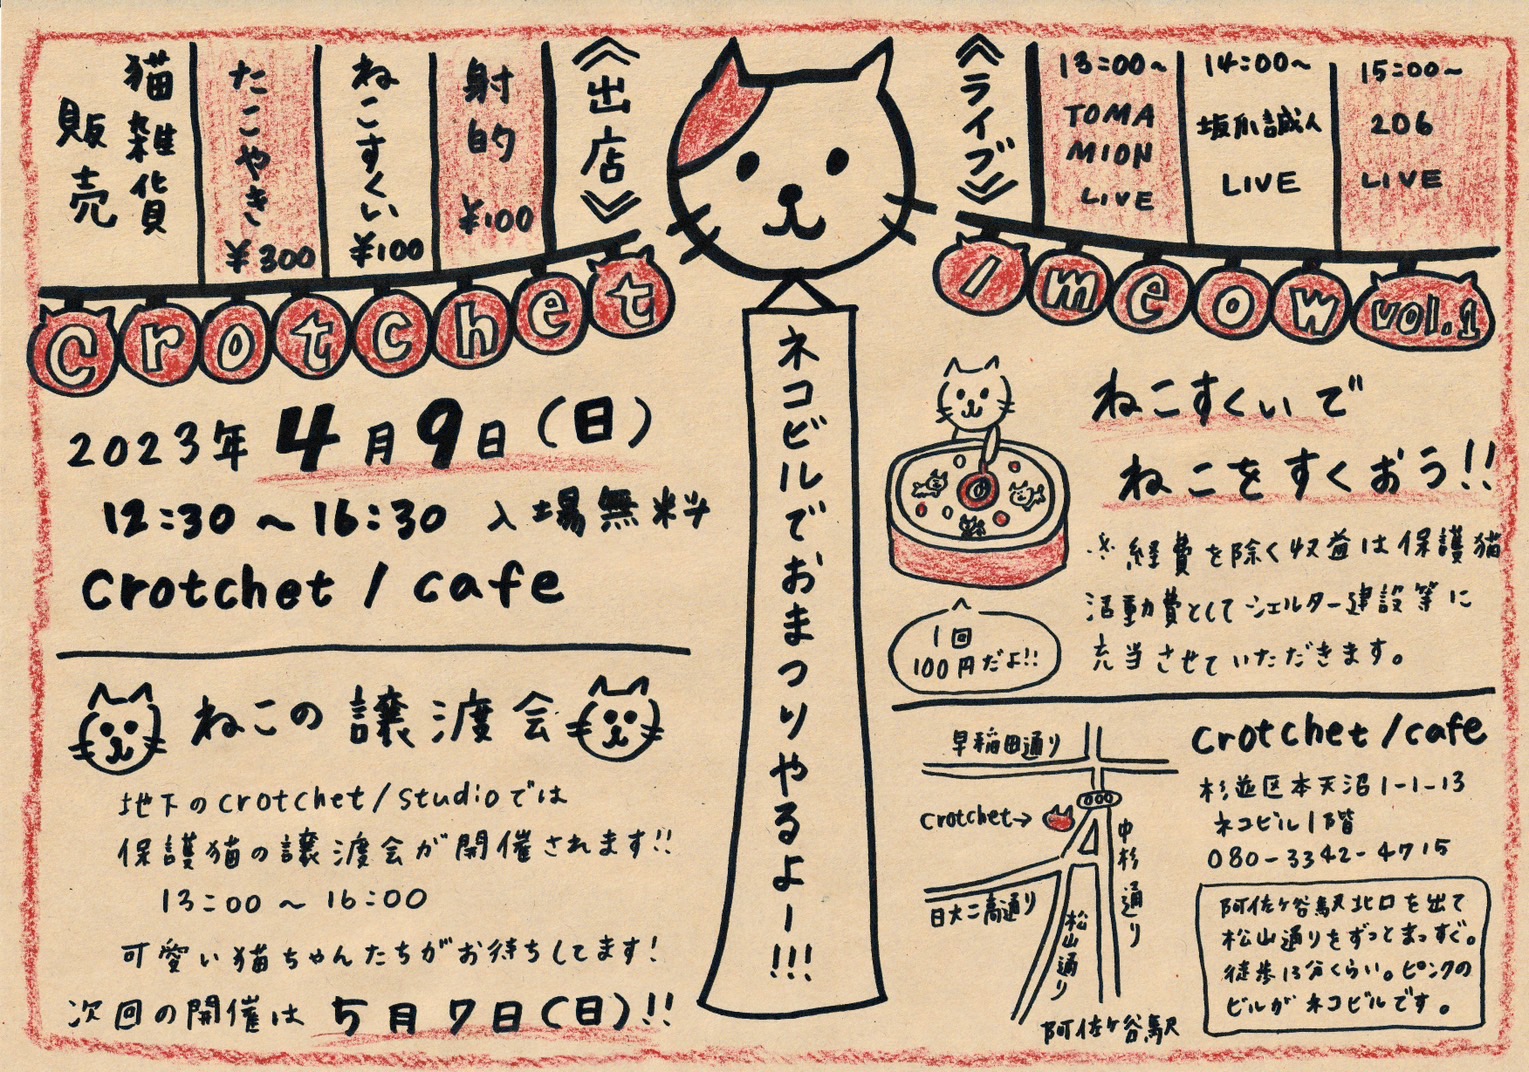 《出店》
射的 ¥100
ねこすくい ¥100
たこやき ¥300
猫雑貨
販売
《ライブ》
13:00〜
TOMA
MION
LIVE
14:00〜
坂爪誠人
LIVE
15:00〜
206
LIVE
crotchet
/meow vol.1
2023年4月9日(日)
12:30〜16:30 入場無料
crotchet / cafe
ネコビルでおまつりやるよー!!!
ねこすくいで
ねこをすくおう!!
※経費を除く収益は保護猫
活動費としてシェルター建設等に
充当させていただきます。
1回
100円だよ!!
ねこの譲渡会
地下のcrotchet/studioでは
保護猫の譲渡会が開催されます!!
13:00〜16:00
可愛い猫ちゃんたちがお待ちしてます!
次回の開催は5月7日(日)!!
早稲田通り
crotchet→
中杉通り
日大二高通り
松山通り
阿佐ヶ谷駅
crotchet/cafe
杉並区本天沼1-1-13
ネコビル1階
080-3342-4715
阿佐ヶ谷駅北口を出て
松山通りをずっとまっすぐ。
徒歩13分くらい。ピンクの
ビルがネコビルです。